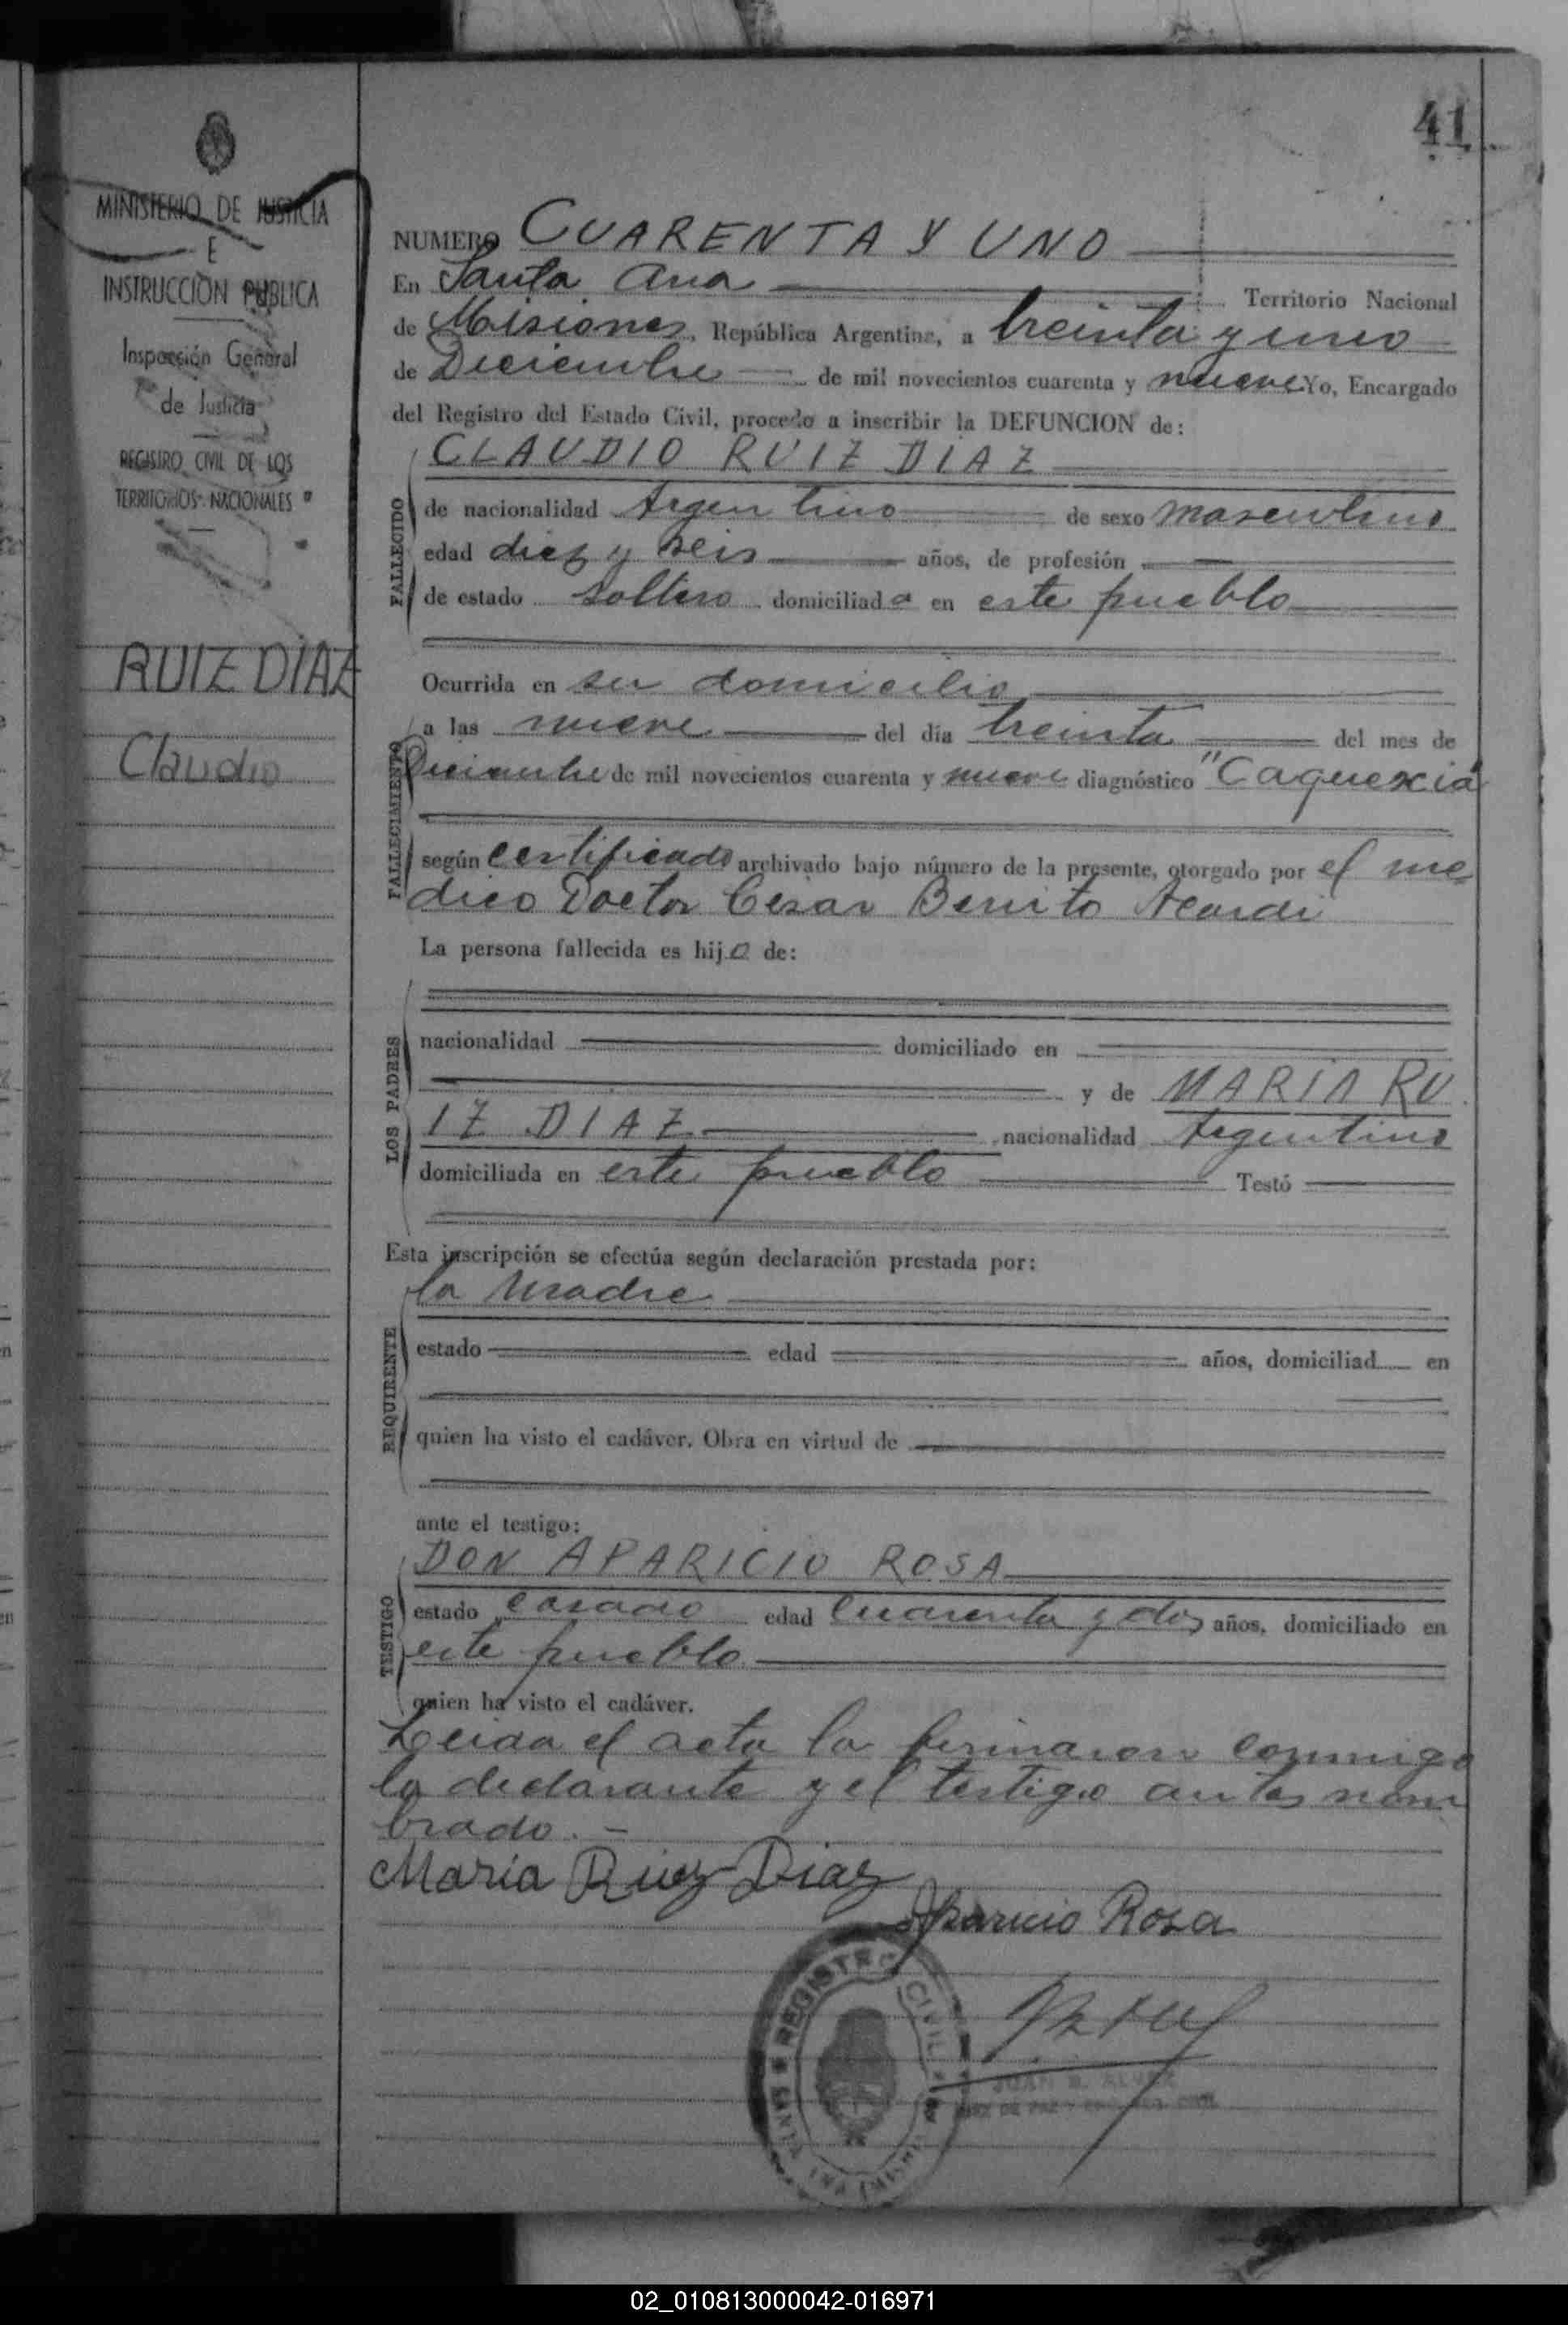 41
MINISTERIO DE JUSTICIA
E
INSTRUCCIÓN PUBLICA
Inspección General
de Justicia
REGISTRO CIVIL DE LOS
TERRITORIOS NACIONALES
RUIZ DIAZ
Claudio
NUMERO CUARENTA Y UNO
En Santa Ana Territorio Nacional
de Misiones, República Argentina, a treinta y uno
de Diciembre de mil novecientos cuarenta y nueve Yo, Encargado
del Registro del Estado Civil, procedo a inscribir la DEFUNCION de:
CLAUDIO RUIZ DIAZ
FALLECIDO
de nacionalidad Argentino de sexo masculino
edad diez y seis años, de profesión
de estado soltero domiciliado en este pueblo
Ocurrida en su domicilio
FALLECIMIENTO
a las nueve del día treinta del mes de
Diciembre de mil novecientos cuarenta y nueve diagnóstico "Caquexia"
según certificado archivado bajo número de la presente, otorgado por el me
dico Doctor Cesar Benito Acardi
La persona fallecida es hijo de:
LOS PADRES
nacionalidad domiciliado en
y de MARIA RU
IZ DIAZ nacionalidad Argentina
domiciliada en este pueblo Testó
Esta inscripción se efectúa según declaración prestada por:
la Madre
REQUIRENTE
estado edad años, domiciliad en
quien ha visto el cadáver. Obra en virtud de
ante el testigo:
DON APARICIO ROSA
TESTIGO
estado casado edad cuarenta y dos años, domiciliado en
este pueblo
quien ha visto el cadáver.
Leida el acta la firmaron conmigo
la declarante y el testigo antes nom
brado.-
Maria Ruiz Diaz
Aparicio Rosa
REGISTRO CIVIL
SANTA ANA (MISIONES)
JUAN B. ALVEZ
JUEZ DE PAZ
02_010813000042-016971